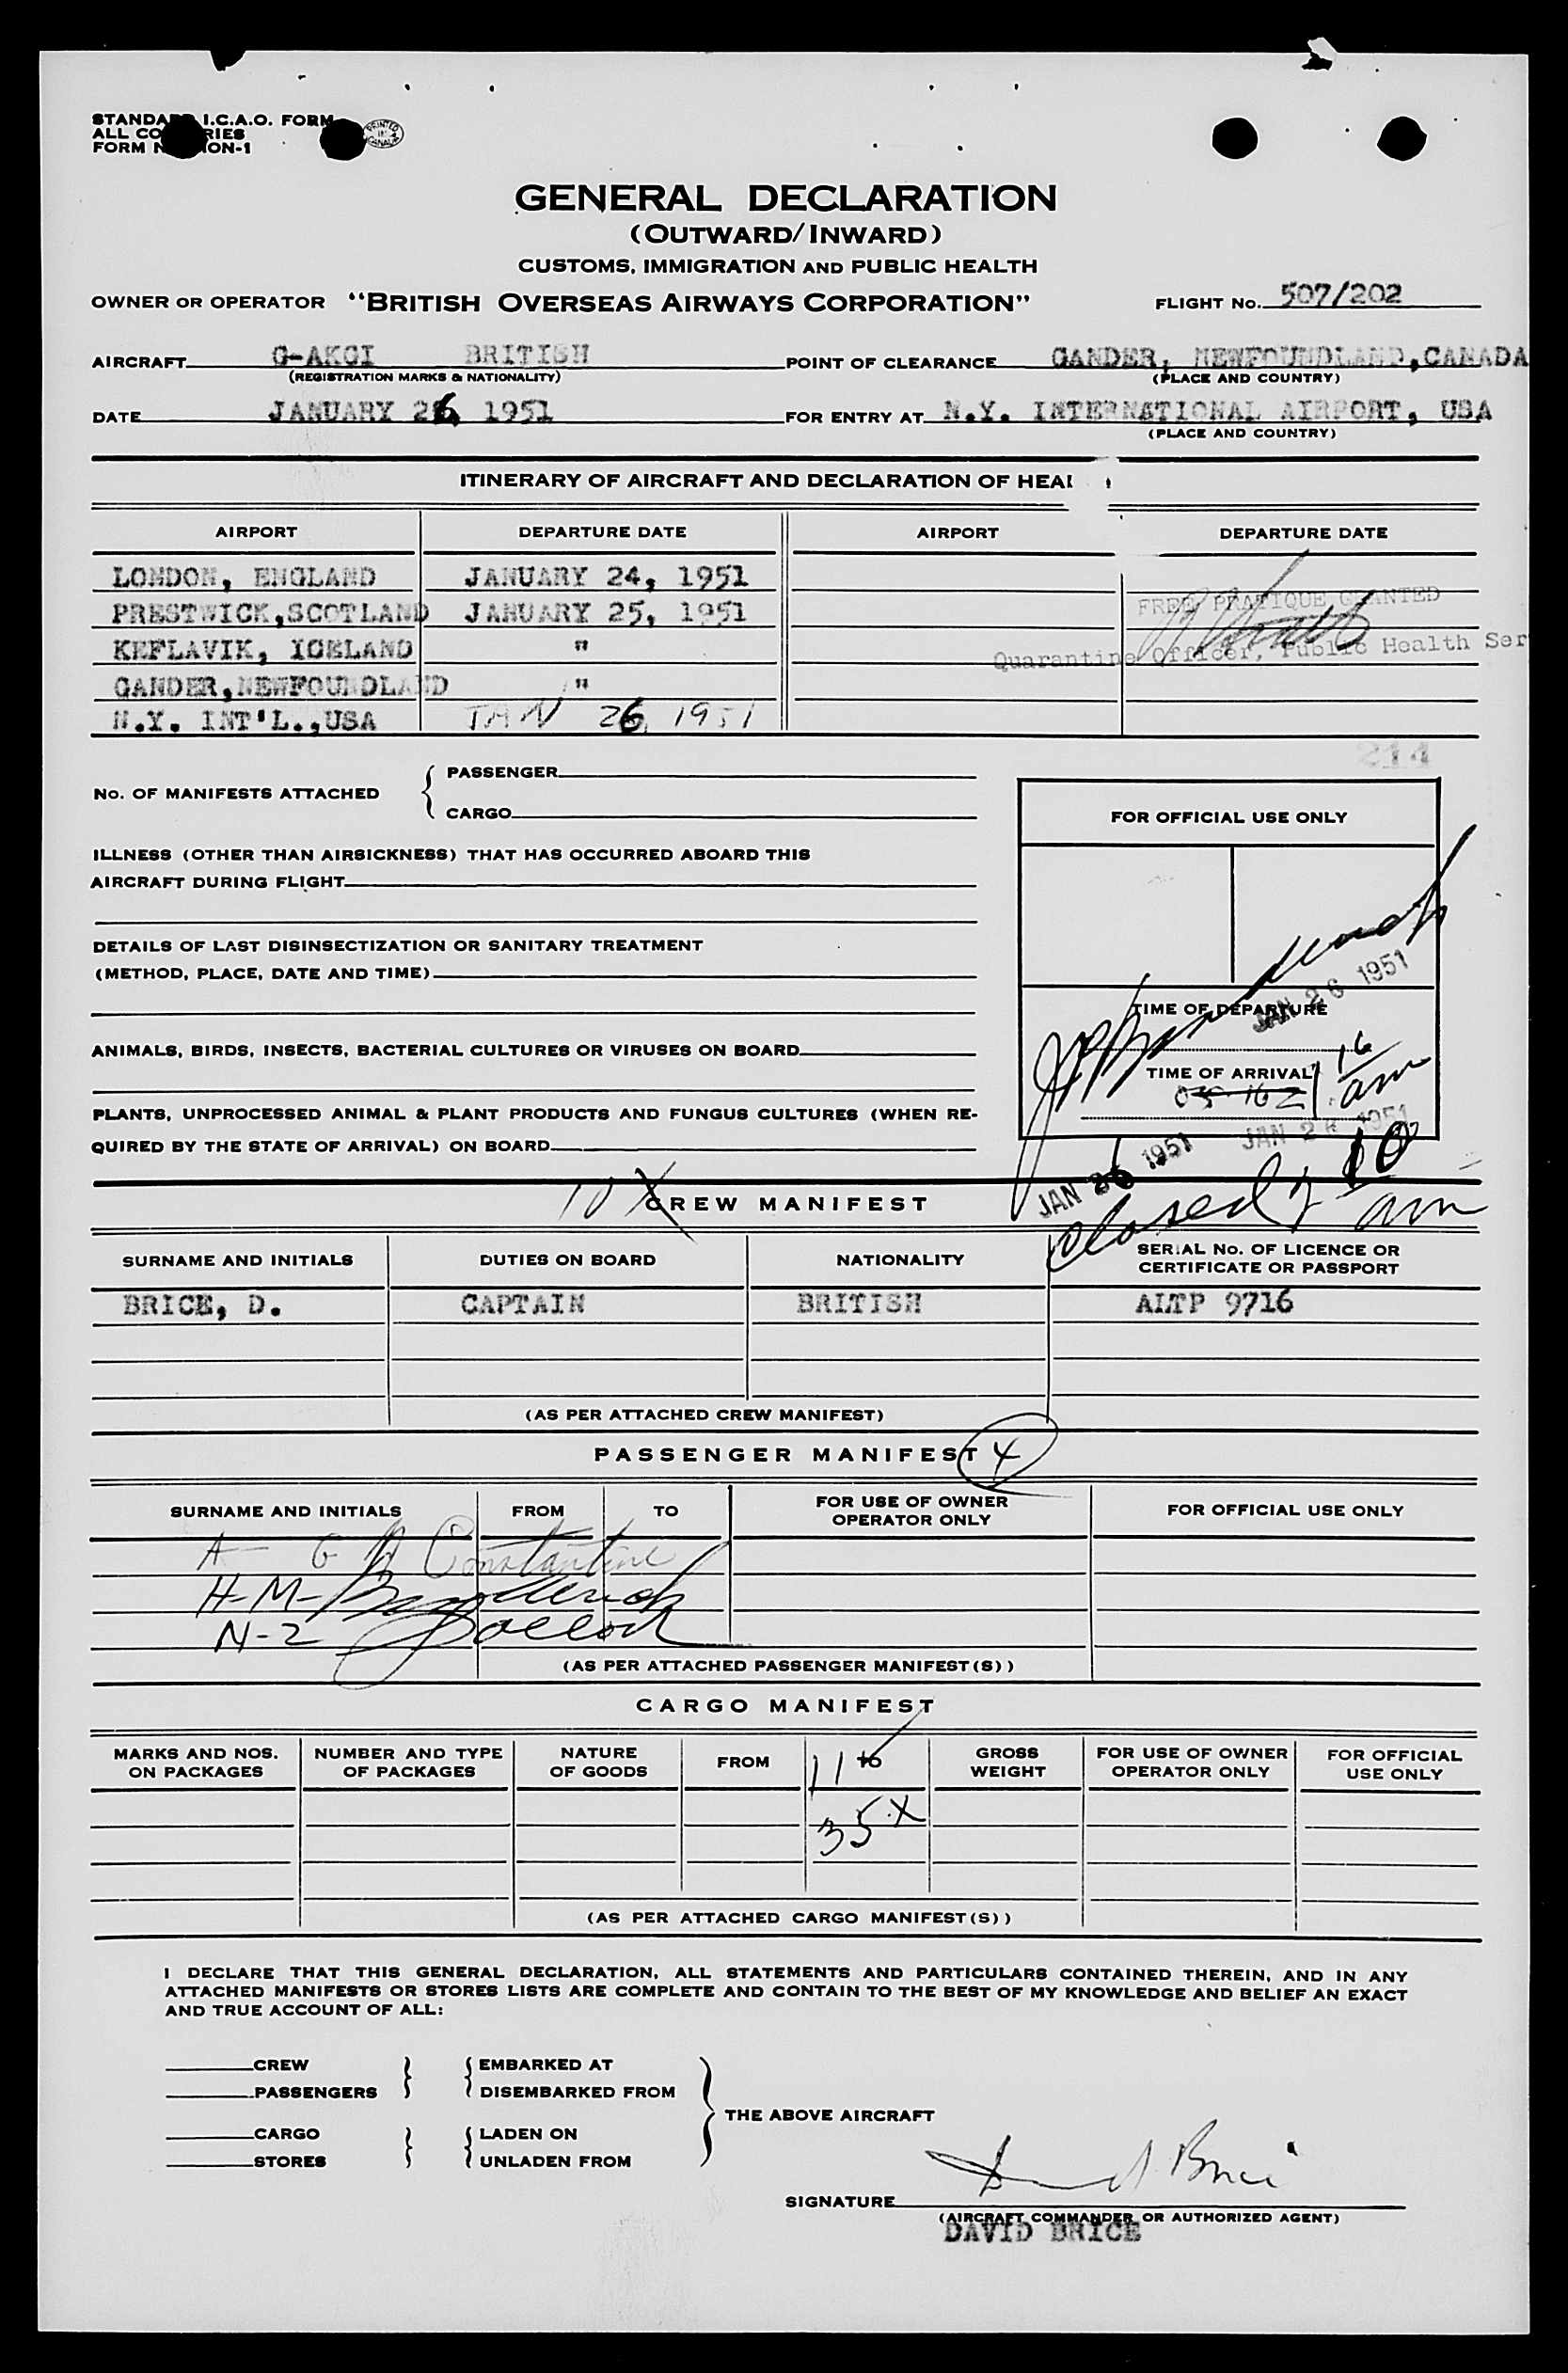 STANDARD I.C.A.O. FORM
ALL CO RIES
FORM N ION-1
PRINTED IN CANADA
GENERAL DECLARATION
(OUTWARD/INWARD)
CUSTOMS, IMMIGRATION AND PUBLIC HEALTH
OWNER OR OPERATOR "BRITISH OVERSEAS AIRWAYS CORPORATION" FLIGHT No. 507/202
AIRCRAFT G-AKGI BRITISH POINT OF CLEARANCE GANDER, NEWFOUNDLAND,CANADA
(REGISTRATION MARKS & NATIONALITY) (PLACE AND COUNTRY)
DATE JANUARY 26, 1951 FOR ENTRY AT N.Y. INTERNATIONAL AIRPORT, USA
(PLACE AND COUNTRY)
ITINERARY OF AIRCRAFT AND DECLARATION OF HEAL
AIRPORT DEPARTURE DATE AIRPORT DEPARTURE DATE
LONDON, ENGLAND JANUARY 24, 1951
PRESTWICK,SCOTLAND JANUARY 25, 1951 FREE PRATIQUE GRANTED
KEFLAVIK, ICELAND " Quarantine Officer, Public Health Ser
GANDER,NEWFOUNDLAND "
N.Y. INT'L.,USA JAN 26, 1951
214
No. OF MANIFESTS ATTACHED { PASSENGER
CARGO
FOR OFFICIAL USE ONLY
ILLNESS (OTHER THAN AIRSICKNESS) THAT HAS OCCURRED ABOARD THIS
AIRCRAFT DURING FLIGHT
DETAILS OF LAST DISINSECTIZATION OR SANITARY TREATMENT
(METHOD, PLACE, DATE AND TIME)
JAN 26 1951
TIME OF DEPARTURE
ANIMALS, BIRDS, INSECTS, BACTERIAL CULTURES OR VIRUSES ON BOARD
TIME OF ARRIVAL 1 16 am
05 16 Z
PLANTS, UNPROCESSED ANIMAL & PLANT PRODUCTS AND FUNGUS CULTURES (WHEN RE-
QUIRED BY THE STATE OF ARRIVAL) ON BOARD
JAN 26 1951
JAN 26 1951
Closed 2 10 am
10 X CREW MANIFEST
SURNAME AND INITIALS DUTIES ON BOARD NATIONALITY SERIAL No. OF LICENCE OR
CERTIFICATE OR PASSPORT
BRICE, D. CAPTAIN BRITISH ALTP 9716
(AS PER ATTACHED CREW MANIFEST)
PASSENGER MANIFEST 4
SURNAME AND INITIALS FROM TO FOR USE OF OWNER
OPERATOR ONLY FOR OFFICIAL USE ONLY
A - G Constantine
H-M-
N-Z
(AS PER ATTACHED PASSENGER MANIFEST(S))
CARGO MANIFEST
MARKS AND NOS.
ON PACKAGES NUMBER AND TYPE
OF PACKAGES NATURE
OF GOODS FROM TO GROSS
WEIGHT FOR USE OF OWNER
OPERATOR ONLY FOR OFFICIAL
USE ONLY
11
35 X
(AS PER ATTACHED CARGO MANIFEST(S))
I DECLARE THAT THIS GENERAL DECLARATION, ALL STATEMENTS AND PARTICULARS CONTAINED THEREIN, AND IN ANY
ATTACHED MANIFESTS OR STORES LISTS ARE COMPLETE AND CONTAIN TO THE BEST OF MY KNOWLEDGE AND BELIEF AN EXACT
AND TRUE ACCOUNT OF ALL:
CREW EMBARKED AT
PASSENGERS DISEMBARKED FROM
THE ABOVE AIRCRAFT
CARGO LADEN ON
STORES UNLADEN FROM
SIGNATURE David Brice
(AIRCRAFT COMMANDER OR AUTHORIZED AGENT)
DAVID BRICE